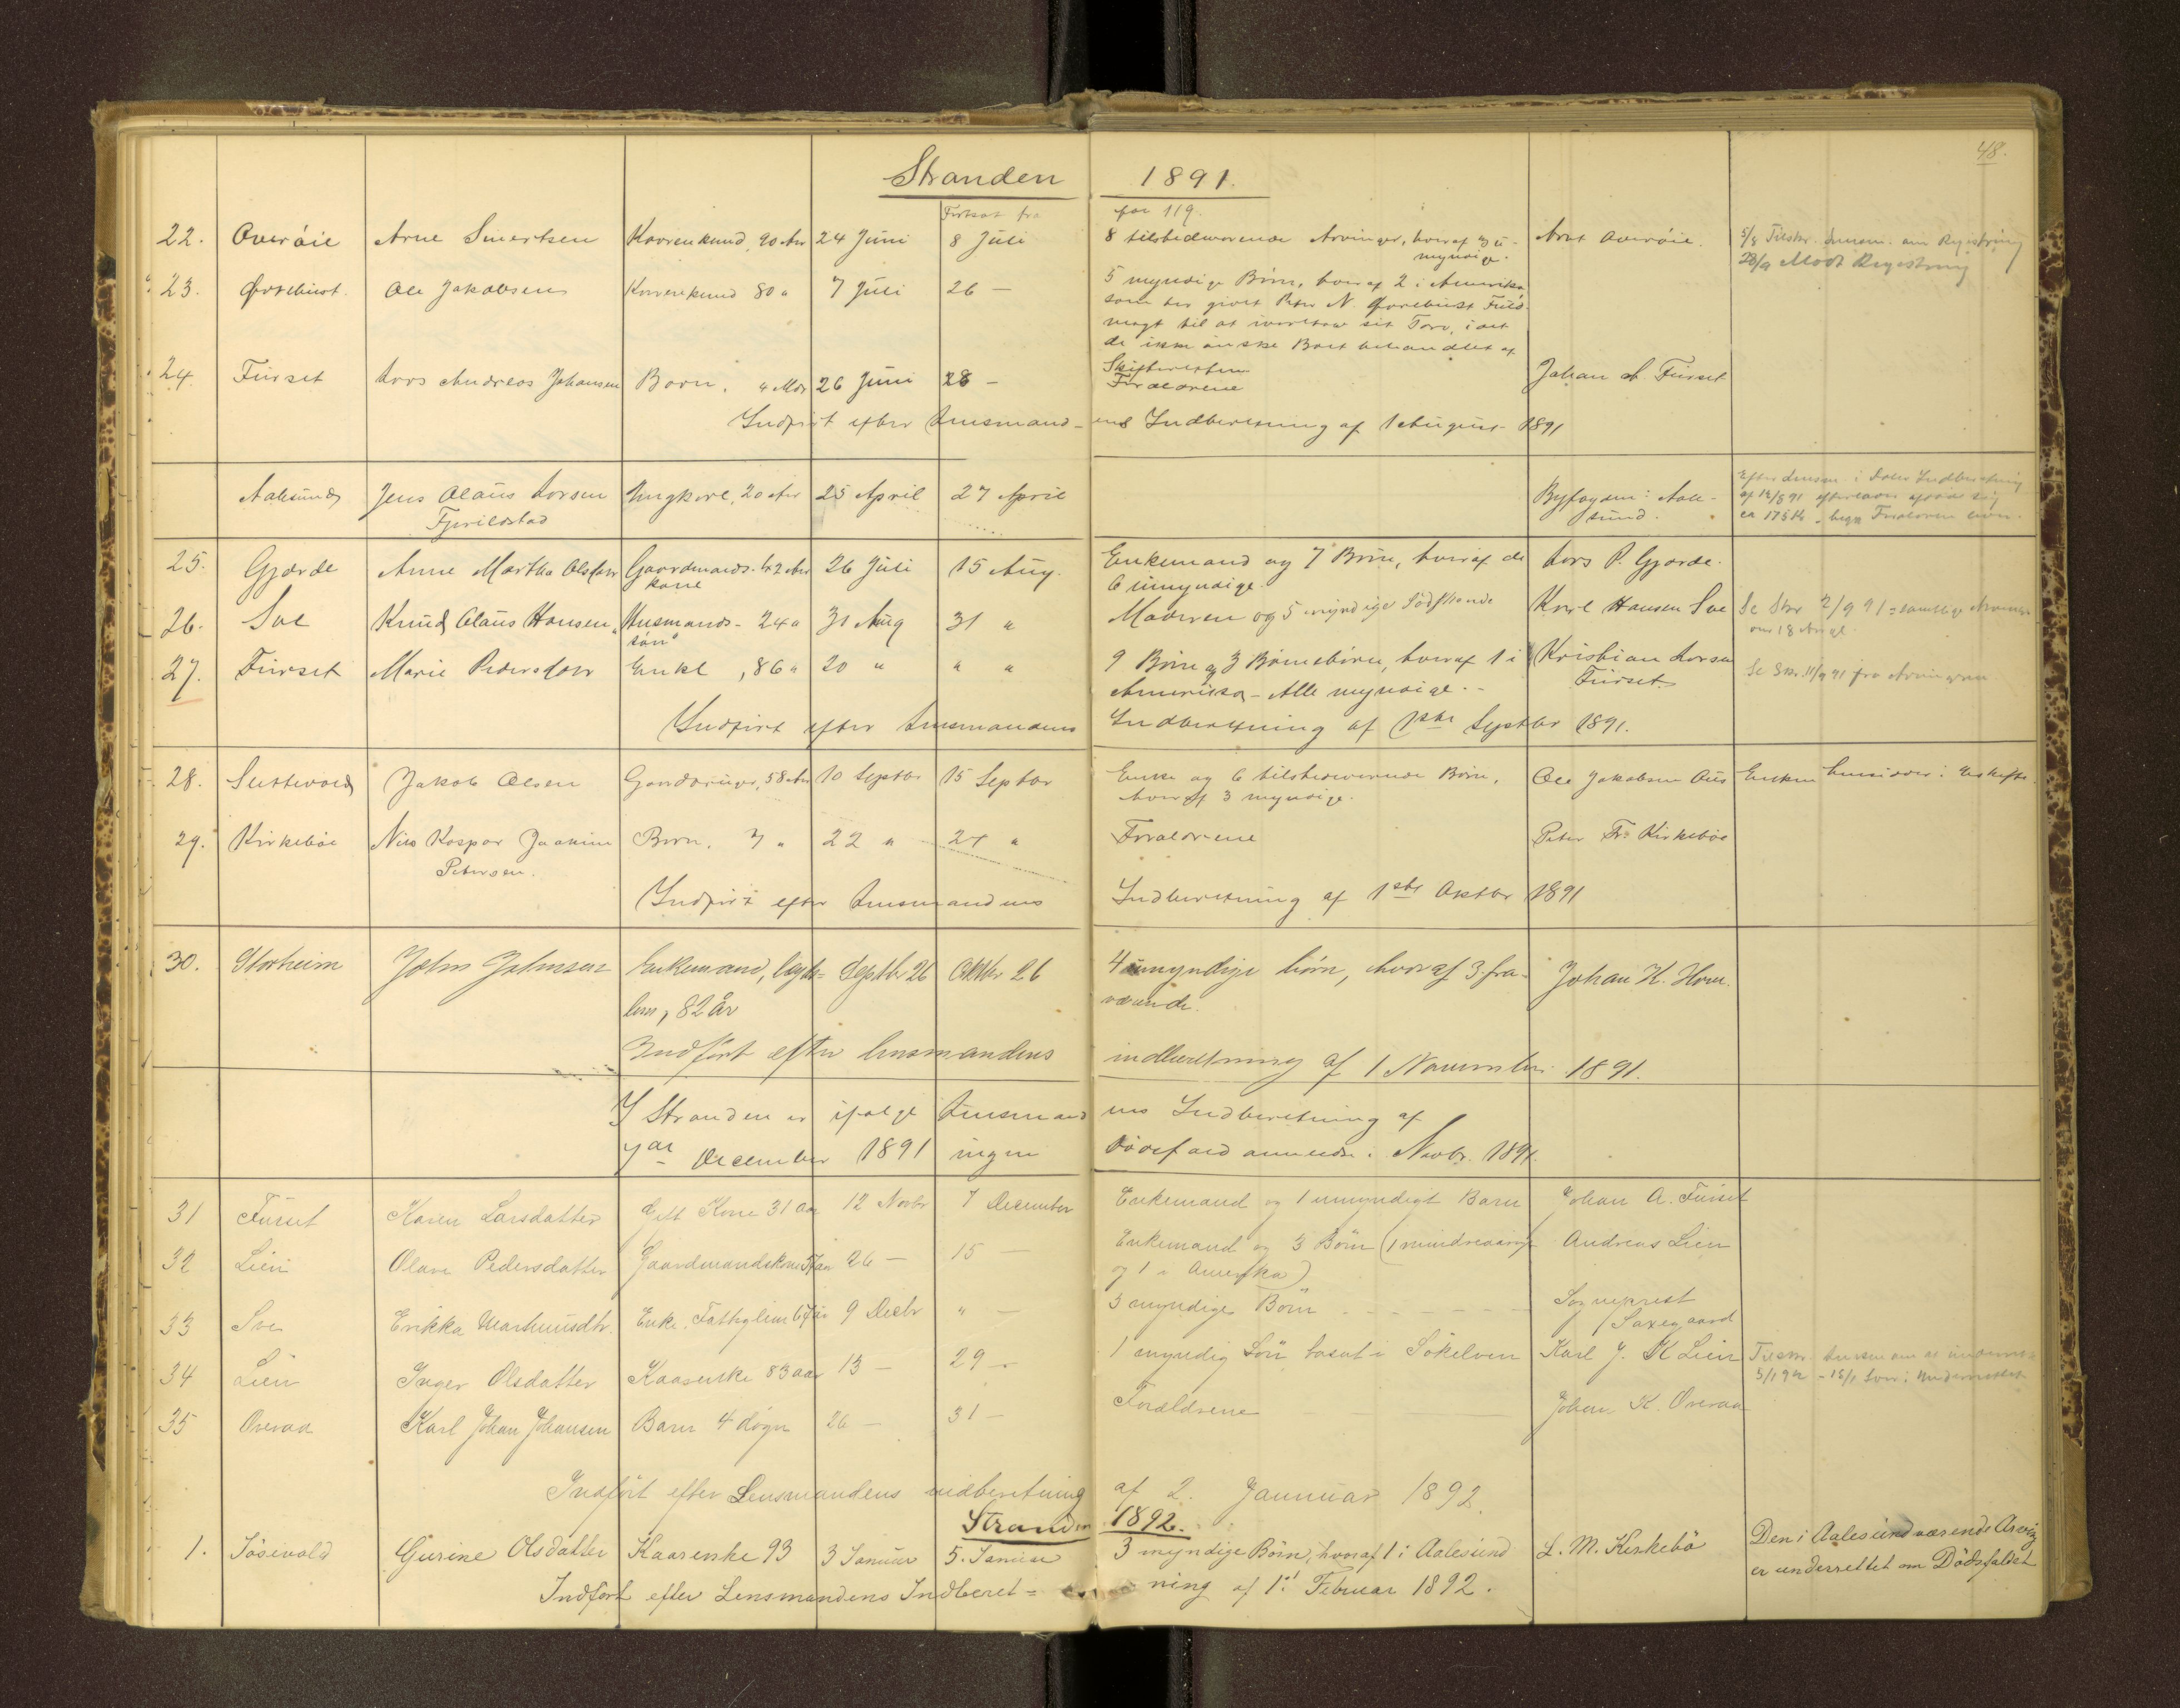 48.
Stranden 1891.
Fortsat fra pag 119.
22. Overöie Arne Sivertsen Kaarenkmnd, 90 Aar 24 Juni 8 Juli 8 tilstedeværende Arvinger, hvoraf 3 u- Arnt Overöie. 5/8 Tilskr. Lensm. om Registrering
myndige. 28/9 Modt Registrering
23. Ole Jakobsen Kaarenkmnd 80 " 7 Juli 26 — 5 myndige Börn, hvoraf 2 i Amerika
som har givet Peter N. Fuld-
magt til at ivaretage sit Tarv, i det
de ikke önske Boet behandlet af
Skifteretten
24. Furset Lars Andreas Johansen Barn. 4 Mdr 26 Juni 28 — Forældrene Johan A. Furset
Indført efter Lensmand- ens Indberetning af 1 August 1891
Aalesund Jens Olaus Larsen Ungkarl, 20 Aar 25 April 27 April Byfogden i Aale- Efter Lensm. i Indberetning
Fjørildstad sund. af 12/8 91
25. Gjærde Anne Martha Olsdatr Gaardmands- 42 Aar 26 Juli 15 Aug. Enkemand og 7 Börn, hvoraf de Lars P. Gjærde.
kone 6 umyndige.
26. Sve Knud Olaus Hansen Husmands- 24 " 31 Aug 31 " Moderen og 5 myndige Södskende Karl Hansen Sve Se Skr 2/9 91 = samtlige Arvinger
sön over 18 Aar gl.
27. Furset Marie Pedersdatr Enke, 86 " 20 " " " 9 Börn og 3 Börnebörn, hvoraf 1 i Kristian Larsen Se Skr. 11/9 91 fra Arvingerne
Amerika - Alle myndige. - Furset.
Indført efter Lensmandens Indberetning af 1ste Septbr 1891.
28. Jakob Olsen Gaardbruger, 58 Aar 10 Septbr 15 Septbr Enke og 6 tilstedeværende Börn, Ole Jakobsen Aus Enken hensidder i Uskifte.
hvoraf 3 myndige.
29. Kirkeböe Nils Kaspar Joakim Barn. 7 " 22 " 24 " Forældrene Peter Fr. Kirkeböe
Petersen.
Indført efter Lensmandens Indberetning af 1ste Oktbr 1891
30. Storheim John Johnsen Enkemand, lægds- Septbr 26 Oktbr 26 4 umyndige börn, hvoraf 3 fra- Johan K. Hove.
lem, 82 år værende.
Indført efter lensmandens indberetning af 1 November 1891.
I Stranden er ifølge Lensmand ens Indberetning af
7de December 1891 ingen Dödsfald anmeldt i Novbr. 1891.
31 Furset Karen Larsdatter Gift Kone 31 Aar 12 Novbr 7 December Enkemand og 1 umyndigt Barn Johan A. Furset
32 Lien Olave Pedersdatter Gaardmandskone 57 aar 26 — 15 — Enkemand og 3 Börn (1 mindreaarig Andreas Lien
og 1 i Amerika)
33 Sve Erikka Marhinusdtr. Enke. Fattiglem 67 aar 9 Decbr " — 3 myndige Börn Sogneprest
Saxegaard
34 Lien Inger Olsdatter Kaarenke 83 aar 13 — 29 — 1 myndig Sön bosat i Sökelven Karl J. K Lien Tilskr.
5/1 92 - 15/1 Svar:
35 Överaa Karl Johan Johansen Barn 4 dögn 26 — 31 — Forældrene Johan K. Överaa
Indført efter Lensmandens indberetning af 2. Januar 1892
Stranden 1892.
1. Gurine Olsdatter Kaarenke 93 3 Januar 5. Januar 3 myndige Börn, hvoraf 1 i Aalesund L. M. Kirkebö Den i Aalesund værende Arving
er underrettet om Dödsfaldet
Indfört efter Lensmandens Indberet= ning af 1st Februar 1892.